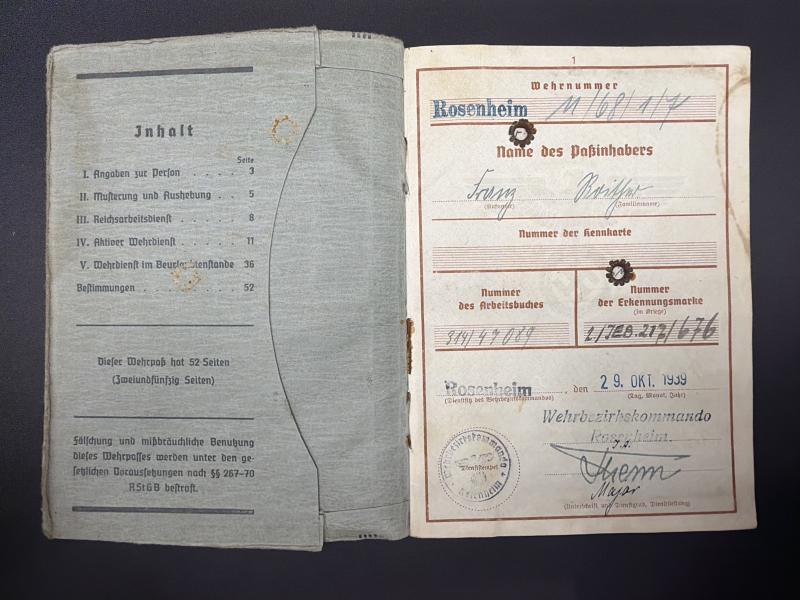 Inhalt
Seite
I. Angaben zur Person . . . . 3
II. Musterung und Aushebung . 5
III. Reichsarbeitsdienst . . . . 8
IV. Aktiver Wehrdienst . . . . 11
V. Wehrdienst im Beurlaubtenstande 36
Bestimmungen . . . . . . . 52
Dieser Wehrpaß hat 52 Seiten
(Zweiundfünfzig Seiten)
Fälschung und mißbräuchliche Benutzung
dieses Wehrpasses werden unter den ge-
setzlichen Voraussetzungen nach §§ 267-70
RStGB bestraft.
1
Wehrnummer
Rosenheim 11/68/1/7
Name des Paßinhabers
Franz
(Rufname) (Familienname)
Nummer der Kennkarte
Nummer
des Arbeitsbuches
Nummer
der Erkennungsmarke
(im Kriege)
314/47089
2./JEB.217/676
Rosenheim, den 29. OKT. 1939
(Dienstsitz des Wehrbezirkskommandos) (Tag, Monat, Jahr)
Wehrbezirkskommando
Rosenheim.
Wehrbezirkskommando
Dienststempel
Rosenheim
Major
(Unterschrift und Dienstgrad, Dienststellung)